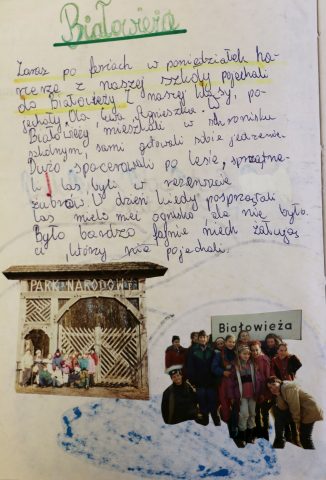 Białowieża
Zaraz po feriach w poniedziałek ha
rcerze z naszej szkoły pojechali
do Białowieży. Z naszej klasy, po
jechały: Ola, Ewa, Agnieszka.
Białowieży mieszkali w schronisku
szkolnym, sami gotowali sobie jedzenie.
Dużo spacerowali po lesie, sprzątne
li las byli w rezerwacie
żubrów. W dzień kiedy posprzątali
las mieli mieć ognisko, ale nie było.
Było bardzo fajnie niech żałują
ci, którzy nie pojechali.
PARK NARODOWY
Białowieża